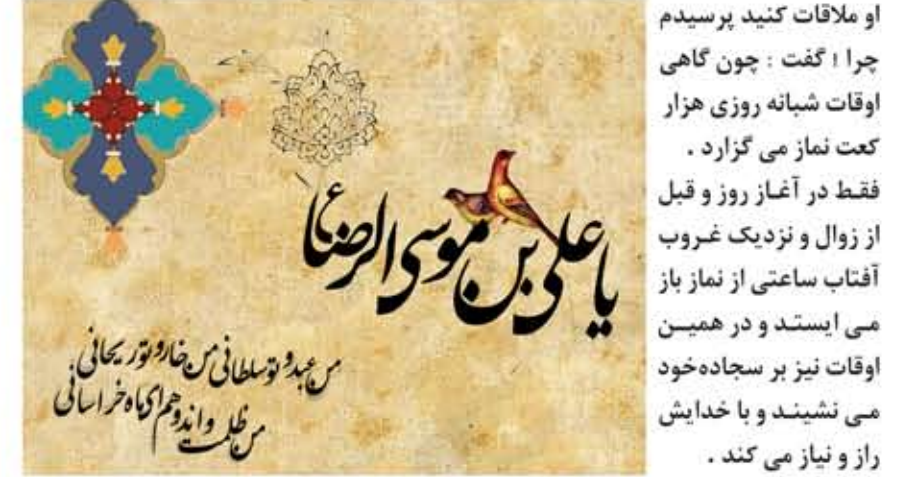 او ملاقات کنید پرسیدم
چرا ؛ گفت : چون گاهی
اوقات شبانه روزی هزار
کعت نماز می گزارد .
فقط در آغاز روز و قبل
از زوال و نزدیک غروب
آفتاب ساعتی از نماز باز
می ایستد و در همین
اوقات نیز بر سجاده‌خود
می نشیند و با خدایش
راز و نیاز می کند .
یا علی بن موسی الرضا ع
من عبد و تو سلطانی من خار و تو ریحانی
من ظلمت و اندوهم ای ماه خراسانی